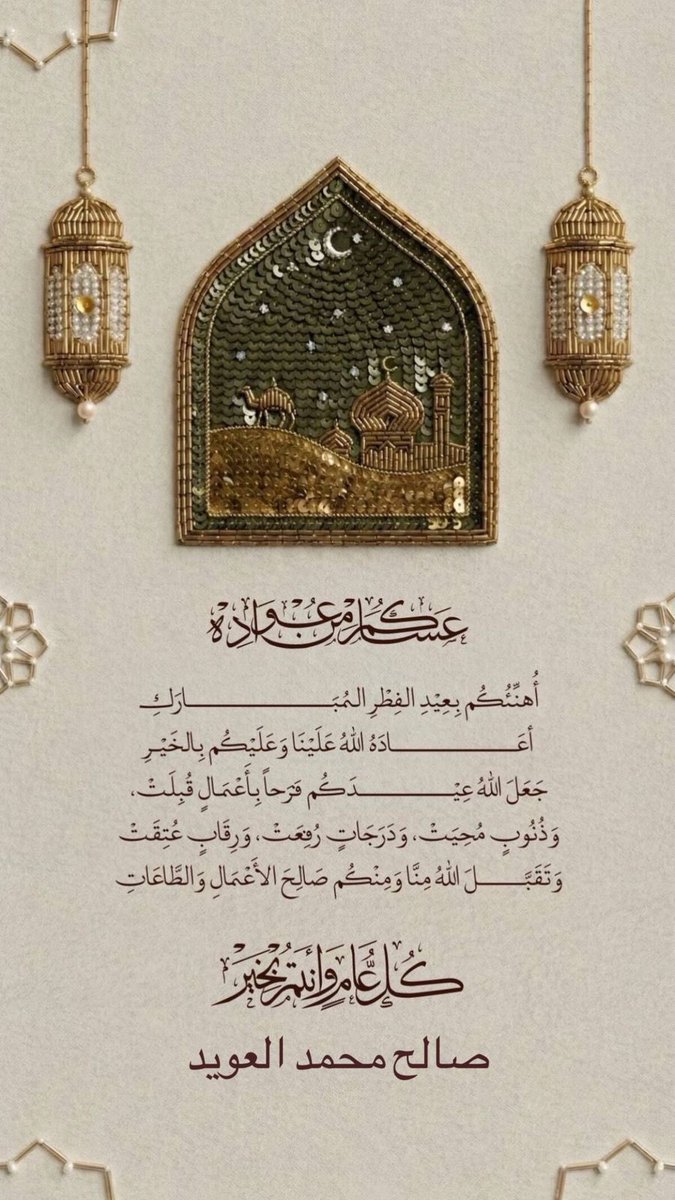 عَسَاكُم مِن عُوَّادِه
أُهنِّئُكُم بِعِيْدِ الفِطْرِ المُبَـــــــــارَكِ
أعَـــــــــادَهُ اللهُ عَلَيْنَا وَعَلَيْكُم بِالخَيْرِ
جَعَلَ اللهُ عِيْـــــــــدَكُم فَرَحاً بِأَعْمَالٍ قُبِلَتْ،
وَذُنُوبٍ مُحِيَتْ، وَدَرَجَاتٍ رُفِعَتْ، وَرِقَابٍ عُتِقَتْ
وَتَقَبَّـــــلَ اللهُ مِنَّا وَمِنْكُم صَالِحَ الأَعْمَالِ وَالطَّاعَاتِ
كُلُّ عَامٍ وَأَنتُم بِخَيْرٍ
صالح محمد العويد